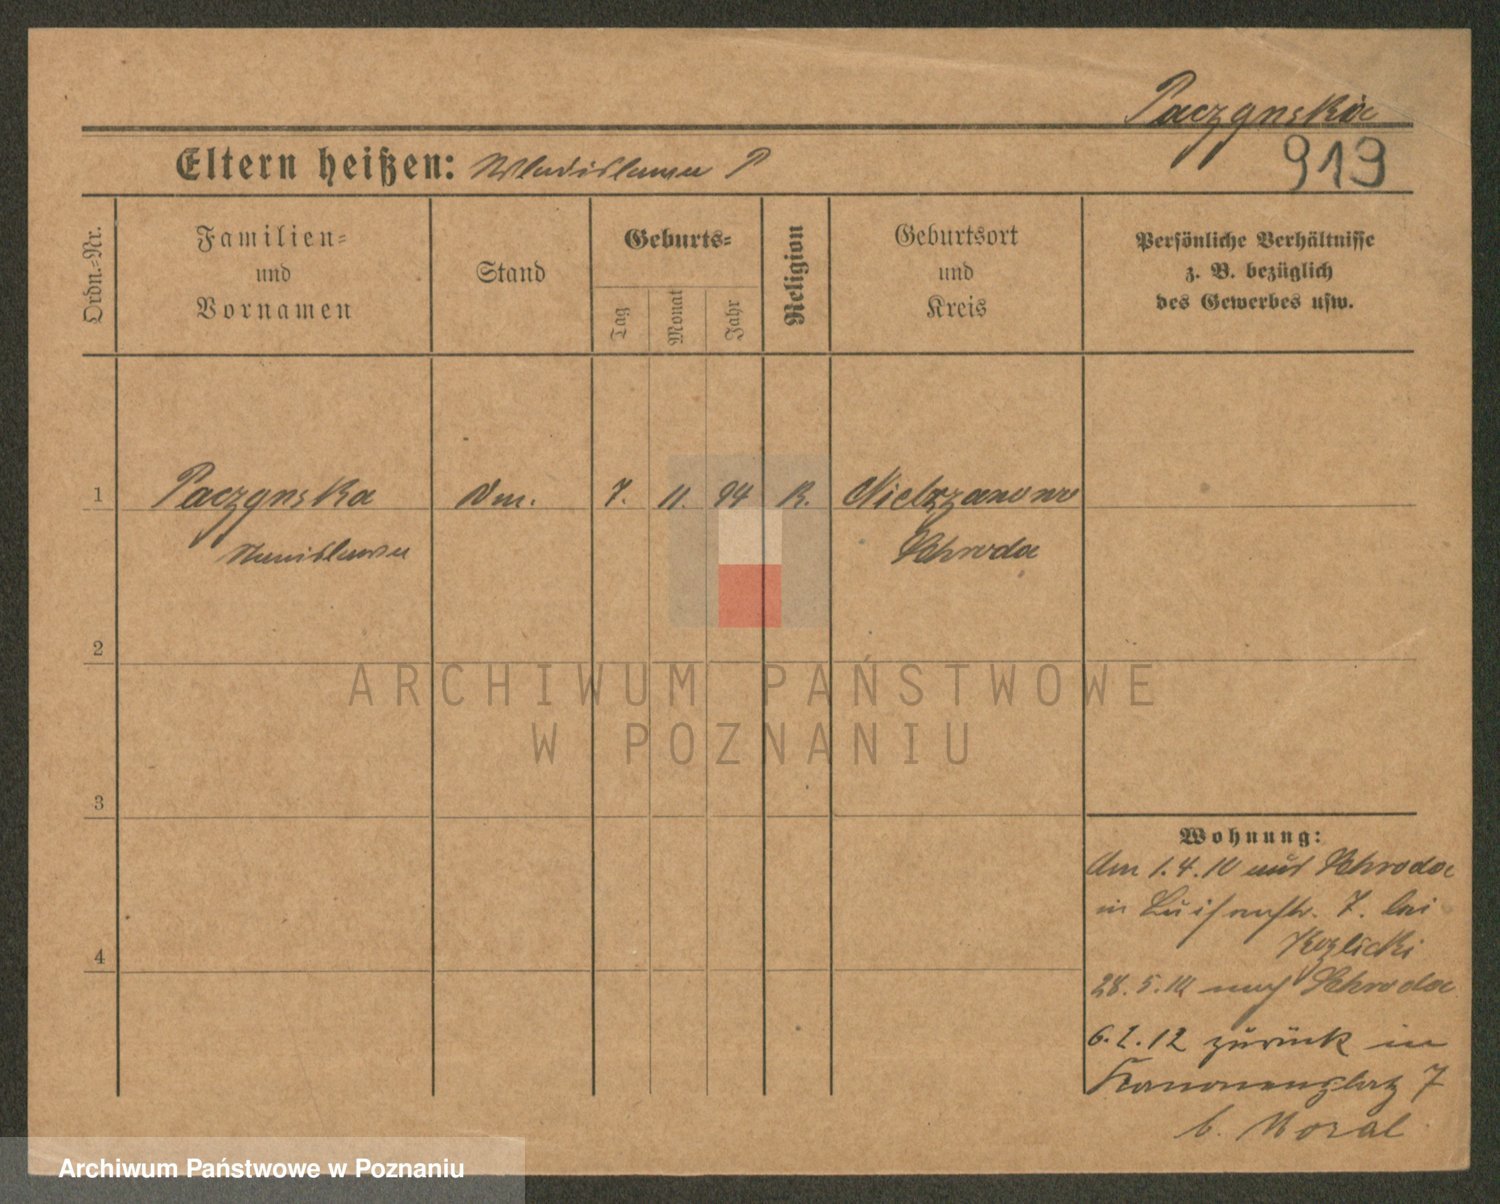 Paczynska
919
Eltern heißen: Wladislawa P
Ordn.-Nr.
Familien-
und
Vornamen
Stand
Geburts-
Tag
Monat
Jahr
Religion
Geburtsort
und
Kreis
Persönliche Verhältnisse
z. B. bezüglich
des Gewerbes usw.
1 Paczynska 7. 11. 94 K.
Stanislawa Schroda
2
ARCHIWUM PAŃSTWOWE
W POZNANIU
3
Wohnung:
Am 1.4.10 aus Schroda
in Luisenstr. 7. bei
Kozlicki
28.5.10 nach Schroda
6.2.12 zurück in
Kanonenplatz 7
b. Moral
4
Archiwum Państwowe w Poznaniu